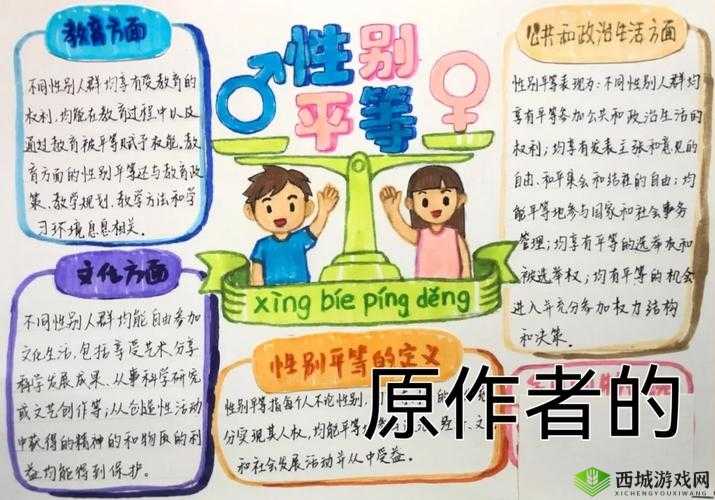 教育方面
不同性别人群均享有受教育的
权利,均能在教育过程中以及
通过教育被平等赋予权能。教
育方面的性别平等还与教育政
策、教学规划、教学方法和学
习环境息息相关。
性别
平等
xìng bíe píng děng
公共和政治生活方面
性别平等表现为:不同性别人群均
享有平等参加公共和政治生活的
权利;均享有发表主张和意见的
自由、和平集会和结社的自由;均
能平等地参与国家和社会事务
管理;均享有平等的选举权和
被选举权;均有平等的机会
进入并充分参加权力结构
和决策。
文化方面
不同性别人群均能自由参加
文化生活,包括享受艺术、分享
科学发展成果、从事科学研究
或文艺创作等;从创造性活动
中获得的精神的和物质的利
益均能得到保护。
性别平等的定义
性别平等指每个人不论性别,
分实现其人权,均能平等
和社会发展活动并从中受益。
原作者的
西城游戏网
XICHENGYOUXIWANG